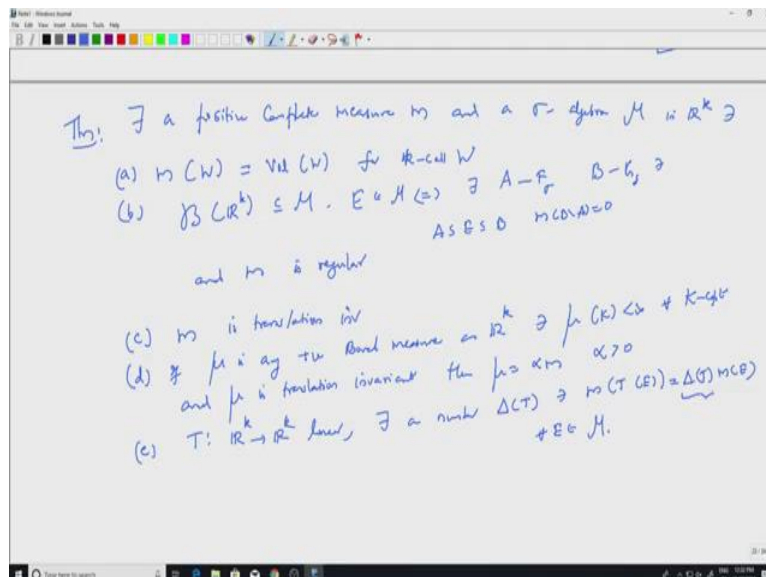 Note1 - Windows Journal
File Edit View Insert Actions Tools Help
Thm: ∃ a positive Complete measure m and a σ-algebra M in ℝ^k ∋
(a) m(W) = Vol(W) for k-cell W
(b) B(ℝ^k) ⊆ M. E ∈ M ⟺ ∃ A-F_σ B-G_δ ∋
A ⊆ E ⊆ B m(B\A)=0
and m is regular
(c) m is translation inv
(d) If μ is any +ve Borel measure on ℝ^k ∋ μ(K)<∞ ∀ K-cpt
and μ is translation invariant then μ = αm α>0
(e) T: ℝ^k → ℝ^k linear, ∃ a number Δ(T) ∋ m(T(E)) = Δ(T) m(E)
∀ E ∈ M.
Type here to search